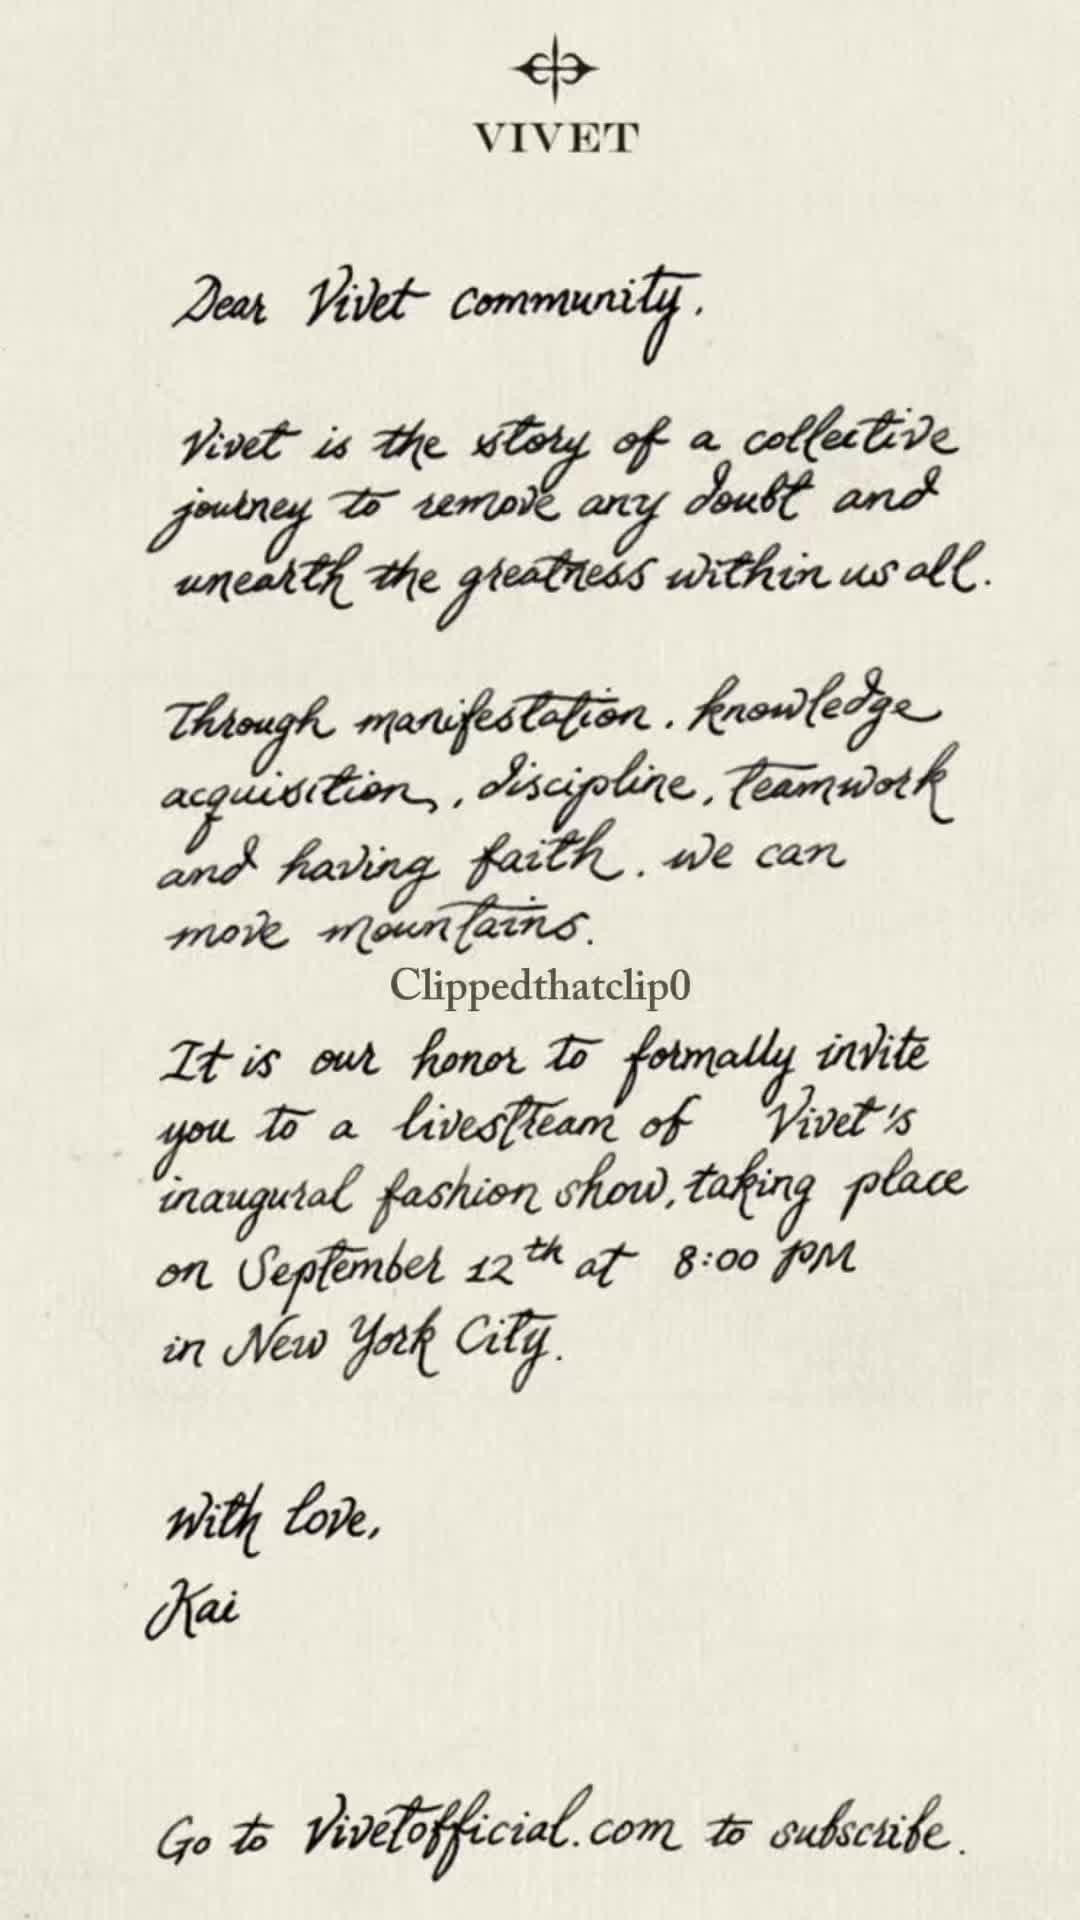 VIVET
Dear Vivet community.
Vivet is the story of a collective
journey to remove any doubt and
unearth the greatness within us all.
Through manifestation. knowledge
acquisition, , discipline, teamwork
and having faith. we can
move mountains.
Clippedthatclip0
It is our honor to formally invite
you to a livestream of Vivet's
inaugural fashion show, taking place
on September 12th at 8:00 PM
in New York City.
With love,
Kai
Go to Vivetofficial.com to subscribe.